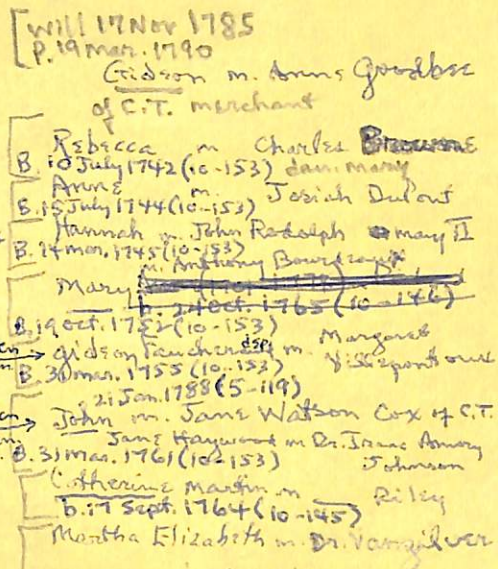 Will 17 Nov 1785
P. 19 Mar. 1790
Gideon m. Anne Goodbee
of C.T. merchant
Rebecca m Charles Browne
B. 10 July 1742 (10-153) dau. mary
Anne m. Josiah Dupont
B. 15 July 1744 (10-153)
Hannah m. John Redolph may II
B. 14 mar. 1745 (10-153)
m. Anthony Bourdeaux
Mary
b. 24 Oct. 1765 (10-146)
B. 19 Oct. 1752 (10-153)
Gideon Faucheraud m. Margaret
B. 30 mar. 1755 (10-153) Villepontoux
21 Jan. 1788 (5-119)
John m. Jane Watson Cox of C.T.
Jane Haywood m Dr. Isaac Amory
B. 31 mar. 1761 (10-153) Johnson
Catherine Martin m Riley
b. 17 Sept. 1764 (10-145)
Martha Elizabeth m. Dr. Vangilver